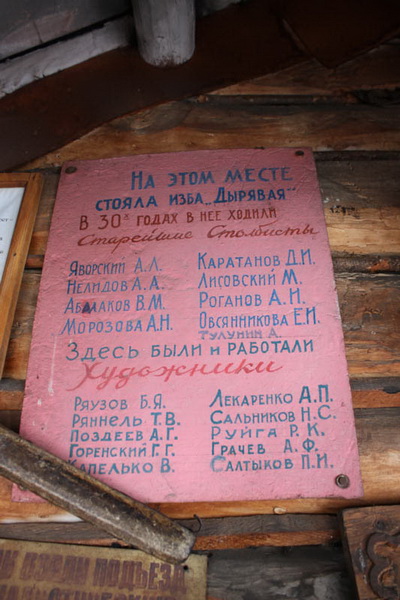 На этом месте
стояла изба „Дырявая"
В 30х годах в нее ходили
Старейшие Столбисты
Яворский А.Л.
Нелидов А.А.
Абалаков В.М.
Морозова А.Н.
Каратанов Д.И.
Лисовский М.
Роганов А.И.
Овсянникова Е.И.
Тулунин А.
Здесь были и работали
Художники
Ряузов Б.Я.
Ряннель Т.В.
Поздеев А.Г.
Горенский Г.Г.
Капелько В.
Лекаренко А.П.
Сальников Н.С.
Руйга Р.К.
Грачев А.Ф.
Салтыков П.И.
ВЗЯЛИ ПОДЪЕЗД